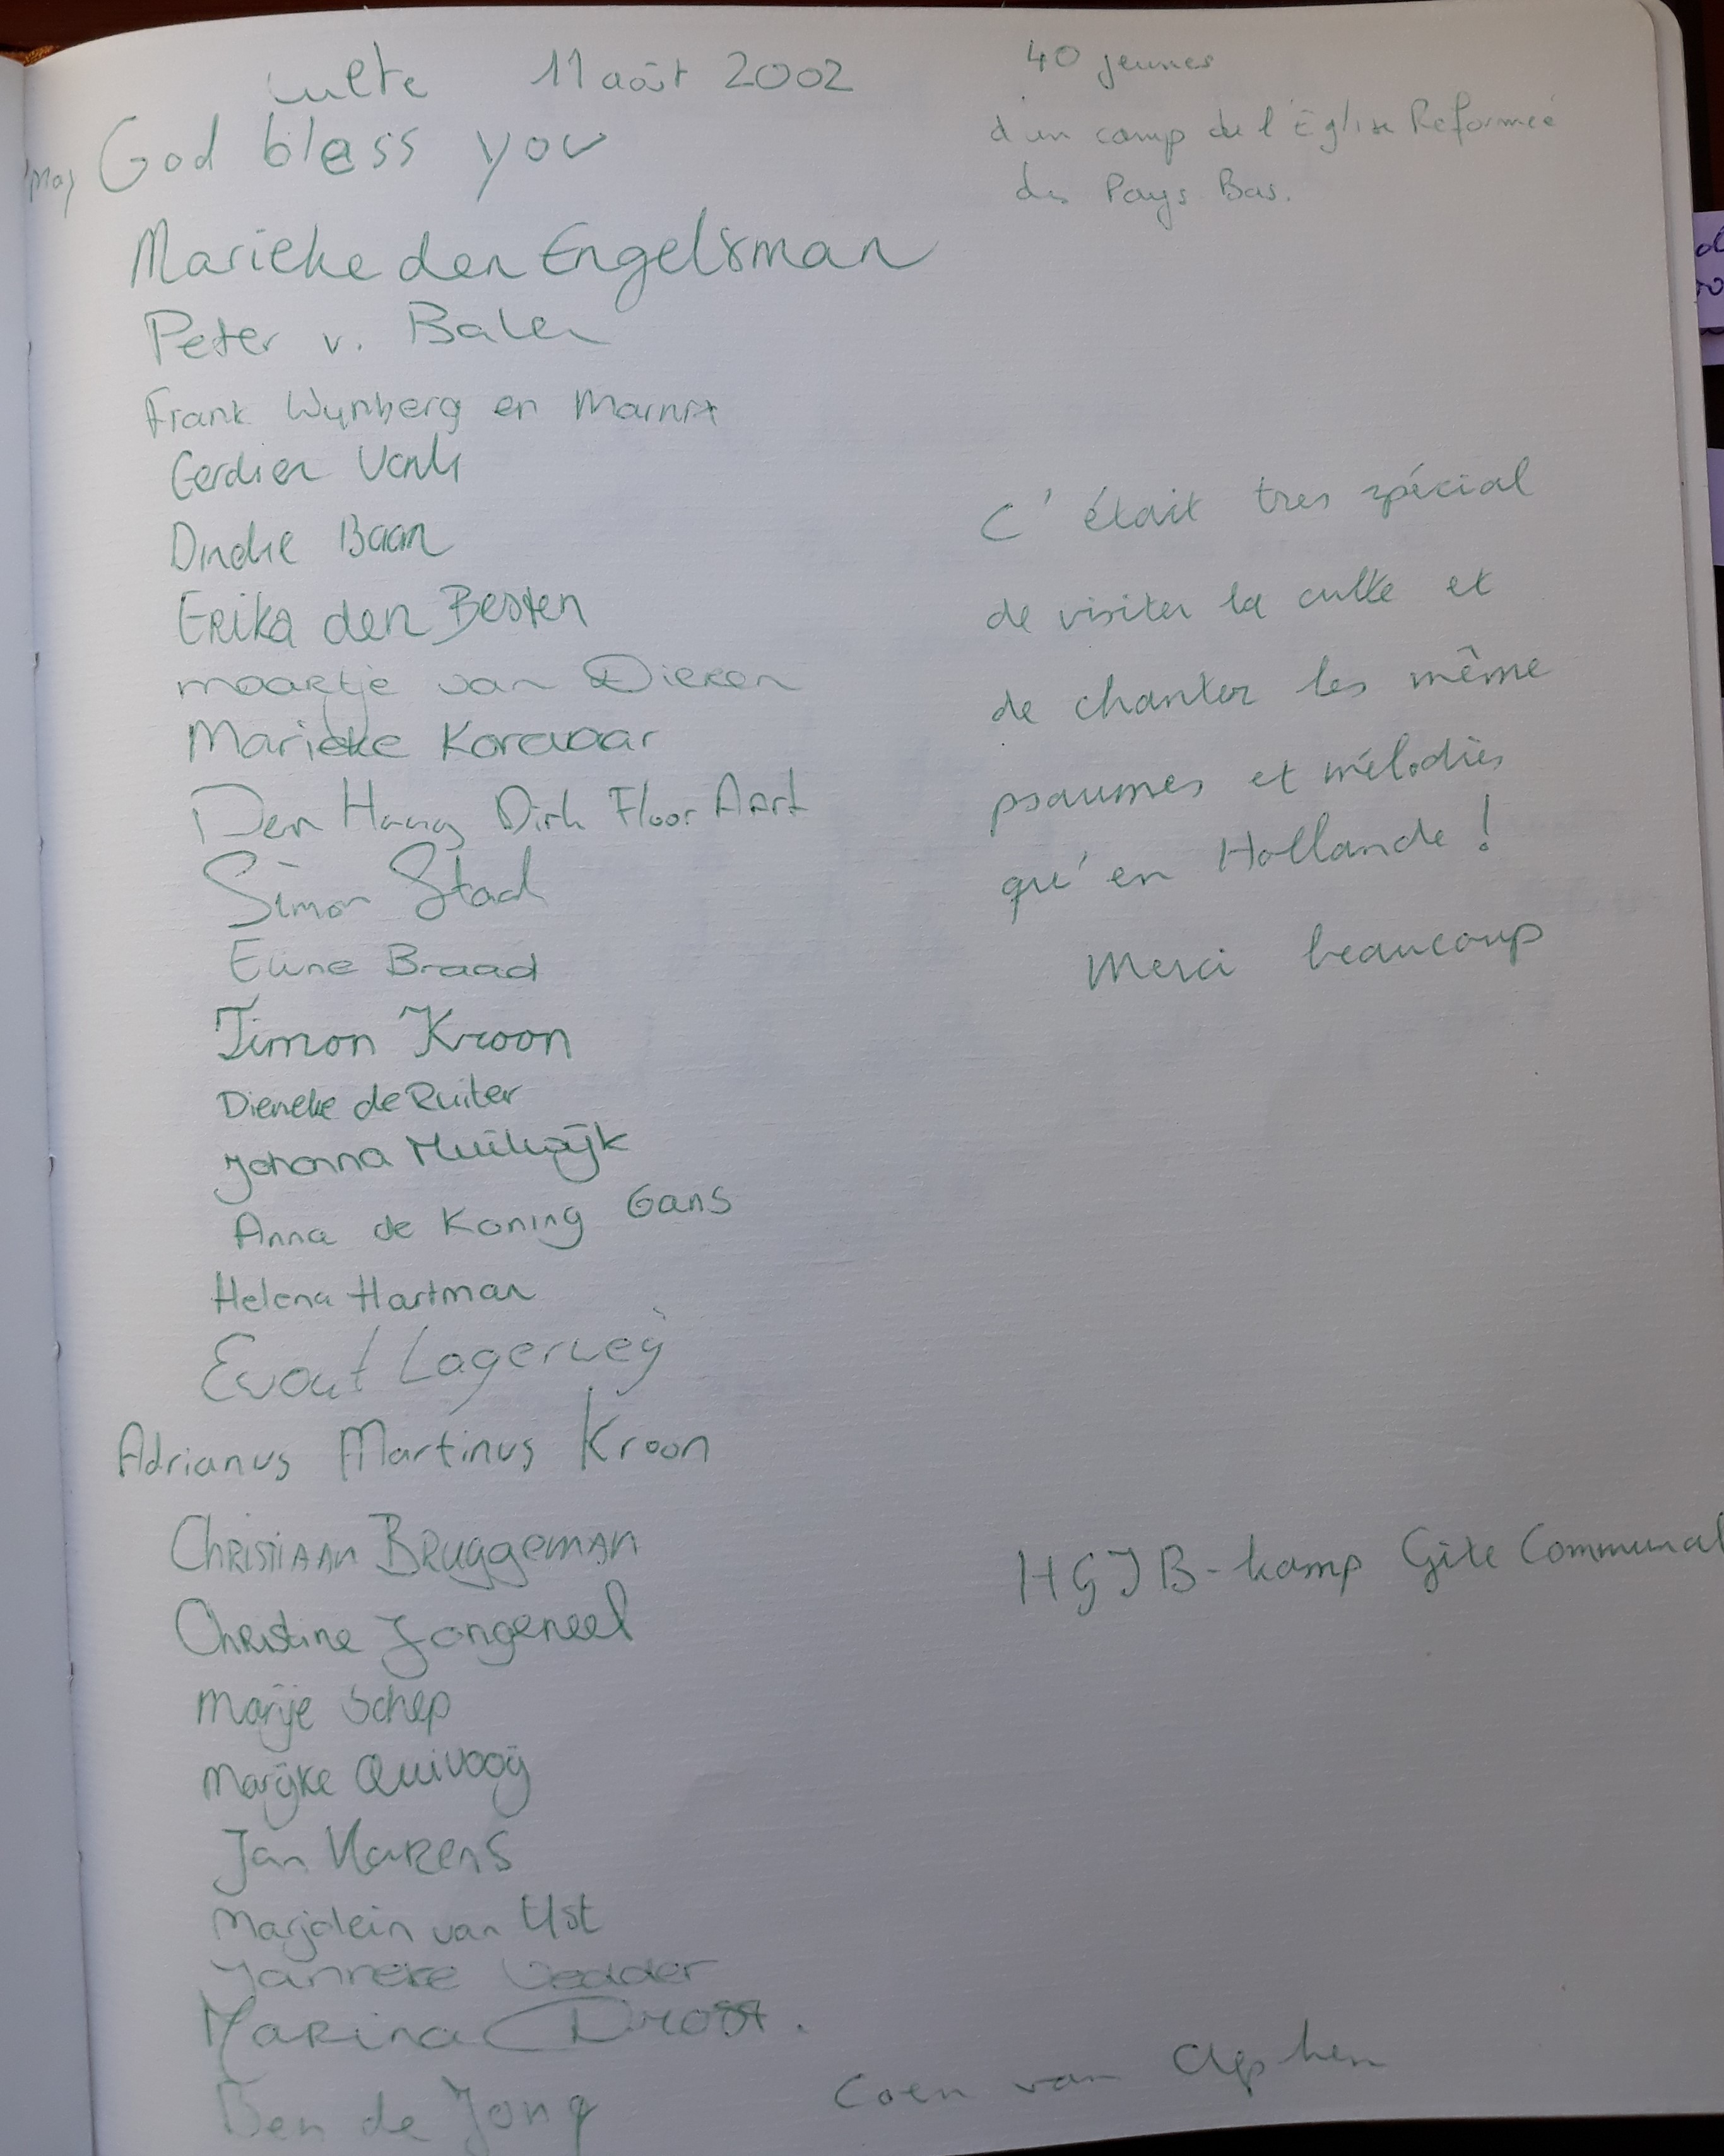 culte 11 août 2002
40 jeunes
d'un camp de l'Église Reformée
des Pays Bas.
may God bless you
Marieke den Engelsman
Peter v. Balen
Frank Wijnberg en Marnix
Gerdien
Baan
Erika den Besten
maartje van Dieren
Marieke Korevaar
Den Haag Dirk Floor Aart
Simon Stad
Eline Braad
Timon Kroon
Dieneke de Ruiter
Johanna Muilwijk
Anna de Koning Gans
Helena Hartman
Evout Lagerweij
Adrianus Martinus Kroon
Christiaan Bruggeman
Christine Jongeneel
Marije Schep
Marijke Quivooij
Jan
Marjolein van
Janneke Vedder
Marina Drost.
Ben de Jong
C'était tres spécial
de visiter la culte et
de chanter les même
psaumes et mélodies
qu'en Hollande !
Merci beaucoup
HGJB-kamp Gîte Communal
Coen van Alphen